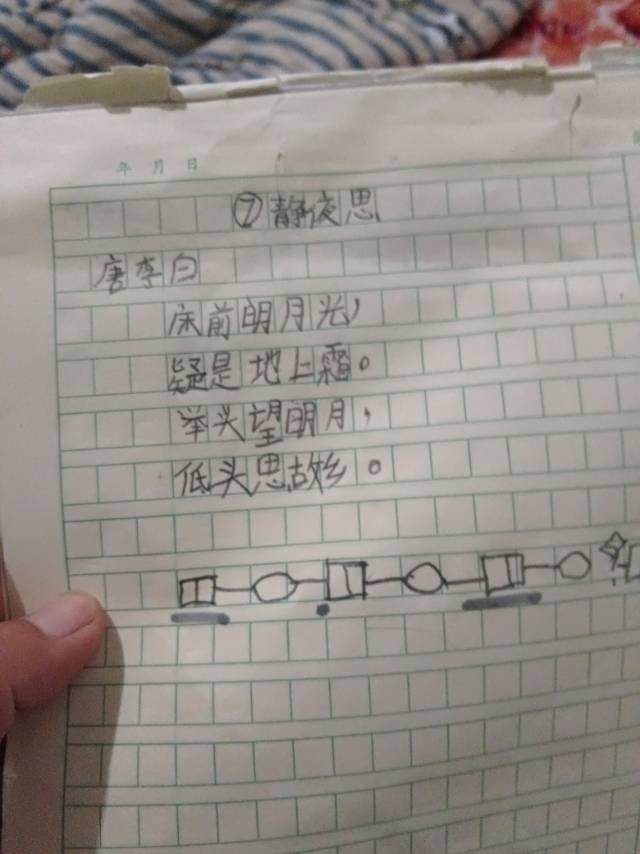 年 月 日
⑦静夜思
唐李白
床前明月光,
疑是地上霜。
举头望明月,
低头思故乡。